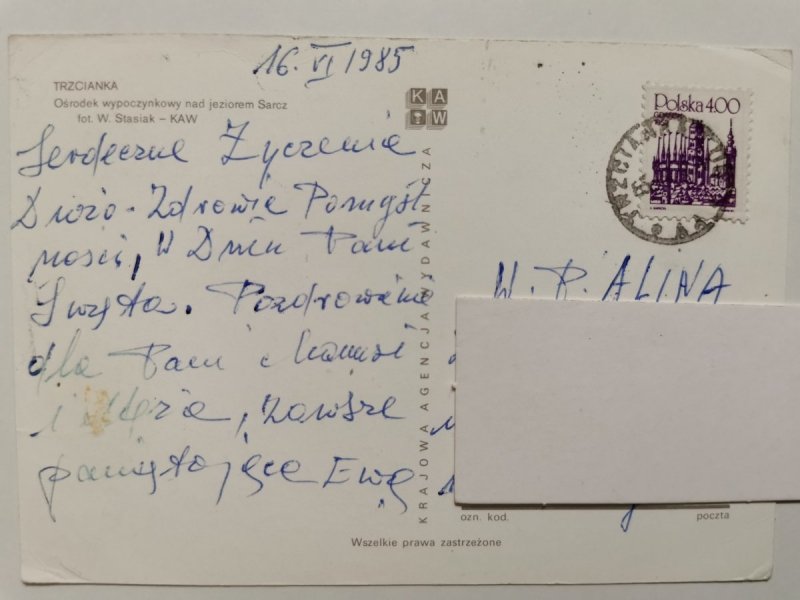 16. VI 1985
TRZCIANKA
Ośrodek wypoczynkowy nad jeziorem Sarcz
fot. W. Stasiak – KAW
KAW
Polska 4.00
Serdeczne Życzenia
Dużo - Zdrowia Pomyśl
ności, W Dniu Pani
Święta. Pozdrowienia
dla Pani i Mamusi
i, zawsze
pamiętająca Ewa
KRAJOWA AGENCJA WYDAWNICZA
W. P. ALINA
ozn. kod. poczta
Wszelkie prawa zastrzeżone